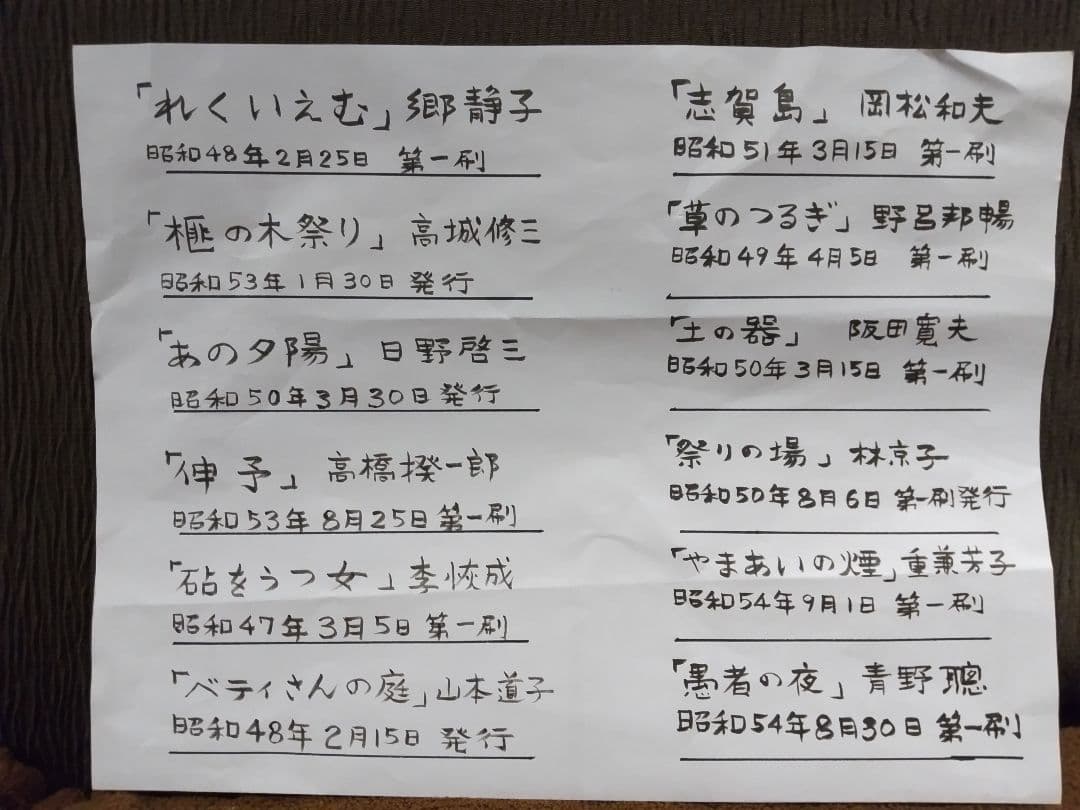 「れくいえむ」郷静子
昭和48年2月25日 第一刷
「榧の木祭り」高城修三
昭和53年1月30日 発行
「あの夕陽」日野啓三
昭和50年3月30日発行
「伸予」高橋揆一郎
昭和53年8月25日第一刷
「砧をうつ女」李恢成
昭和47年3月5日第一刷
「ベティさんの庭」山本道子
昭和48年2月15日 発行
「志賀島」岡松和夫
昭和51年3月15日 第一刷
「草のつるぎ」野呂邦暢
昭和49年4月5日 第一刷
「土の器」 阪田寛夫
昭和50年3月15日 第一刷
「祭りの場」林京子
昭和50年8月6日 第一刷発行
「やまあいの煙」重兼芳子
昭和54年9月1日 第一刷
「愚者の夜」青野聰
昭和54年8月30日 第一刷